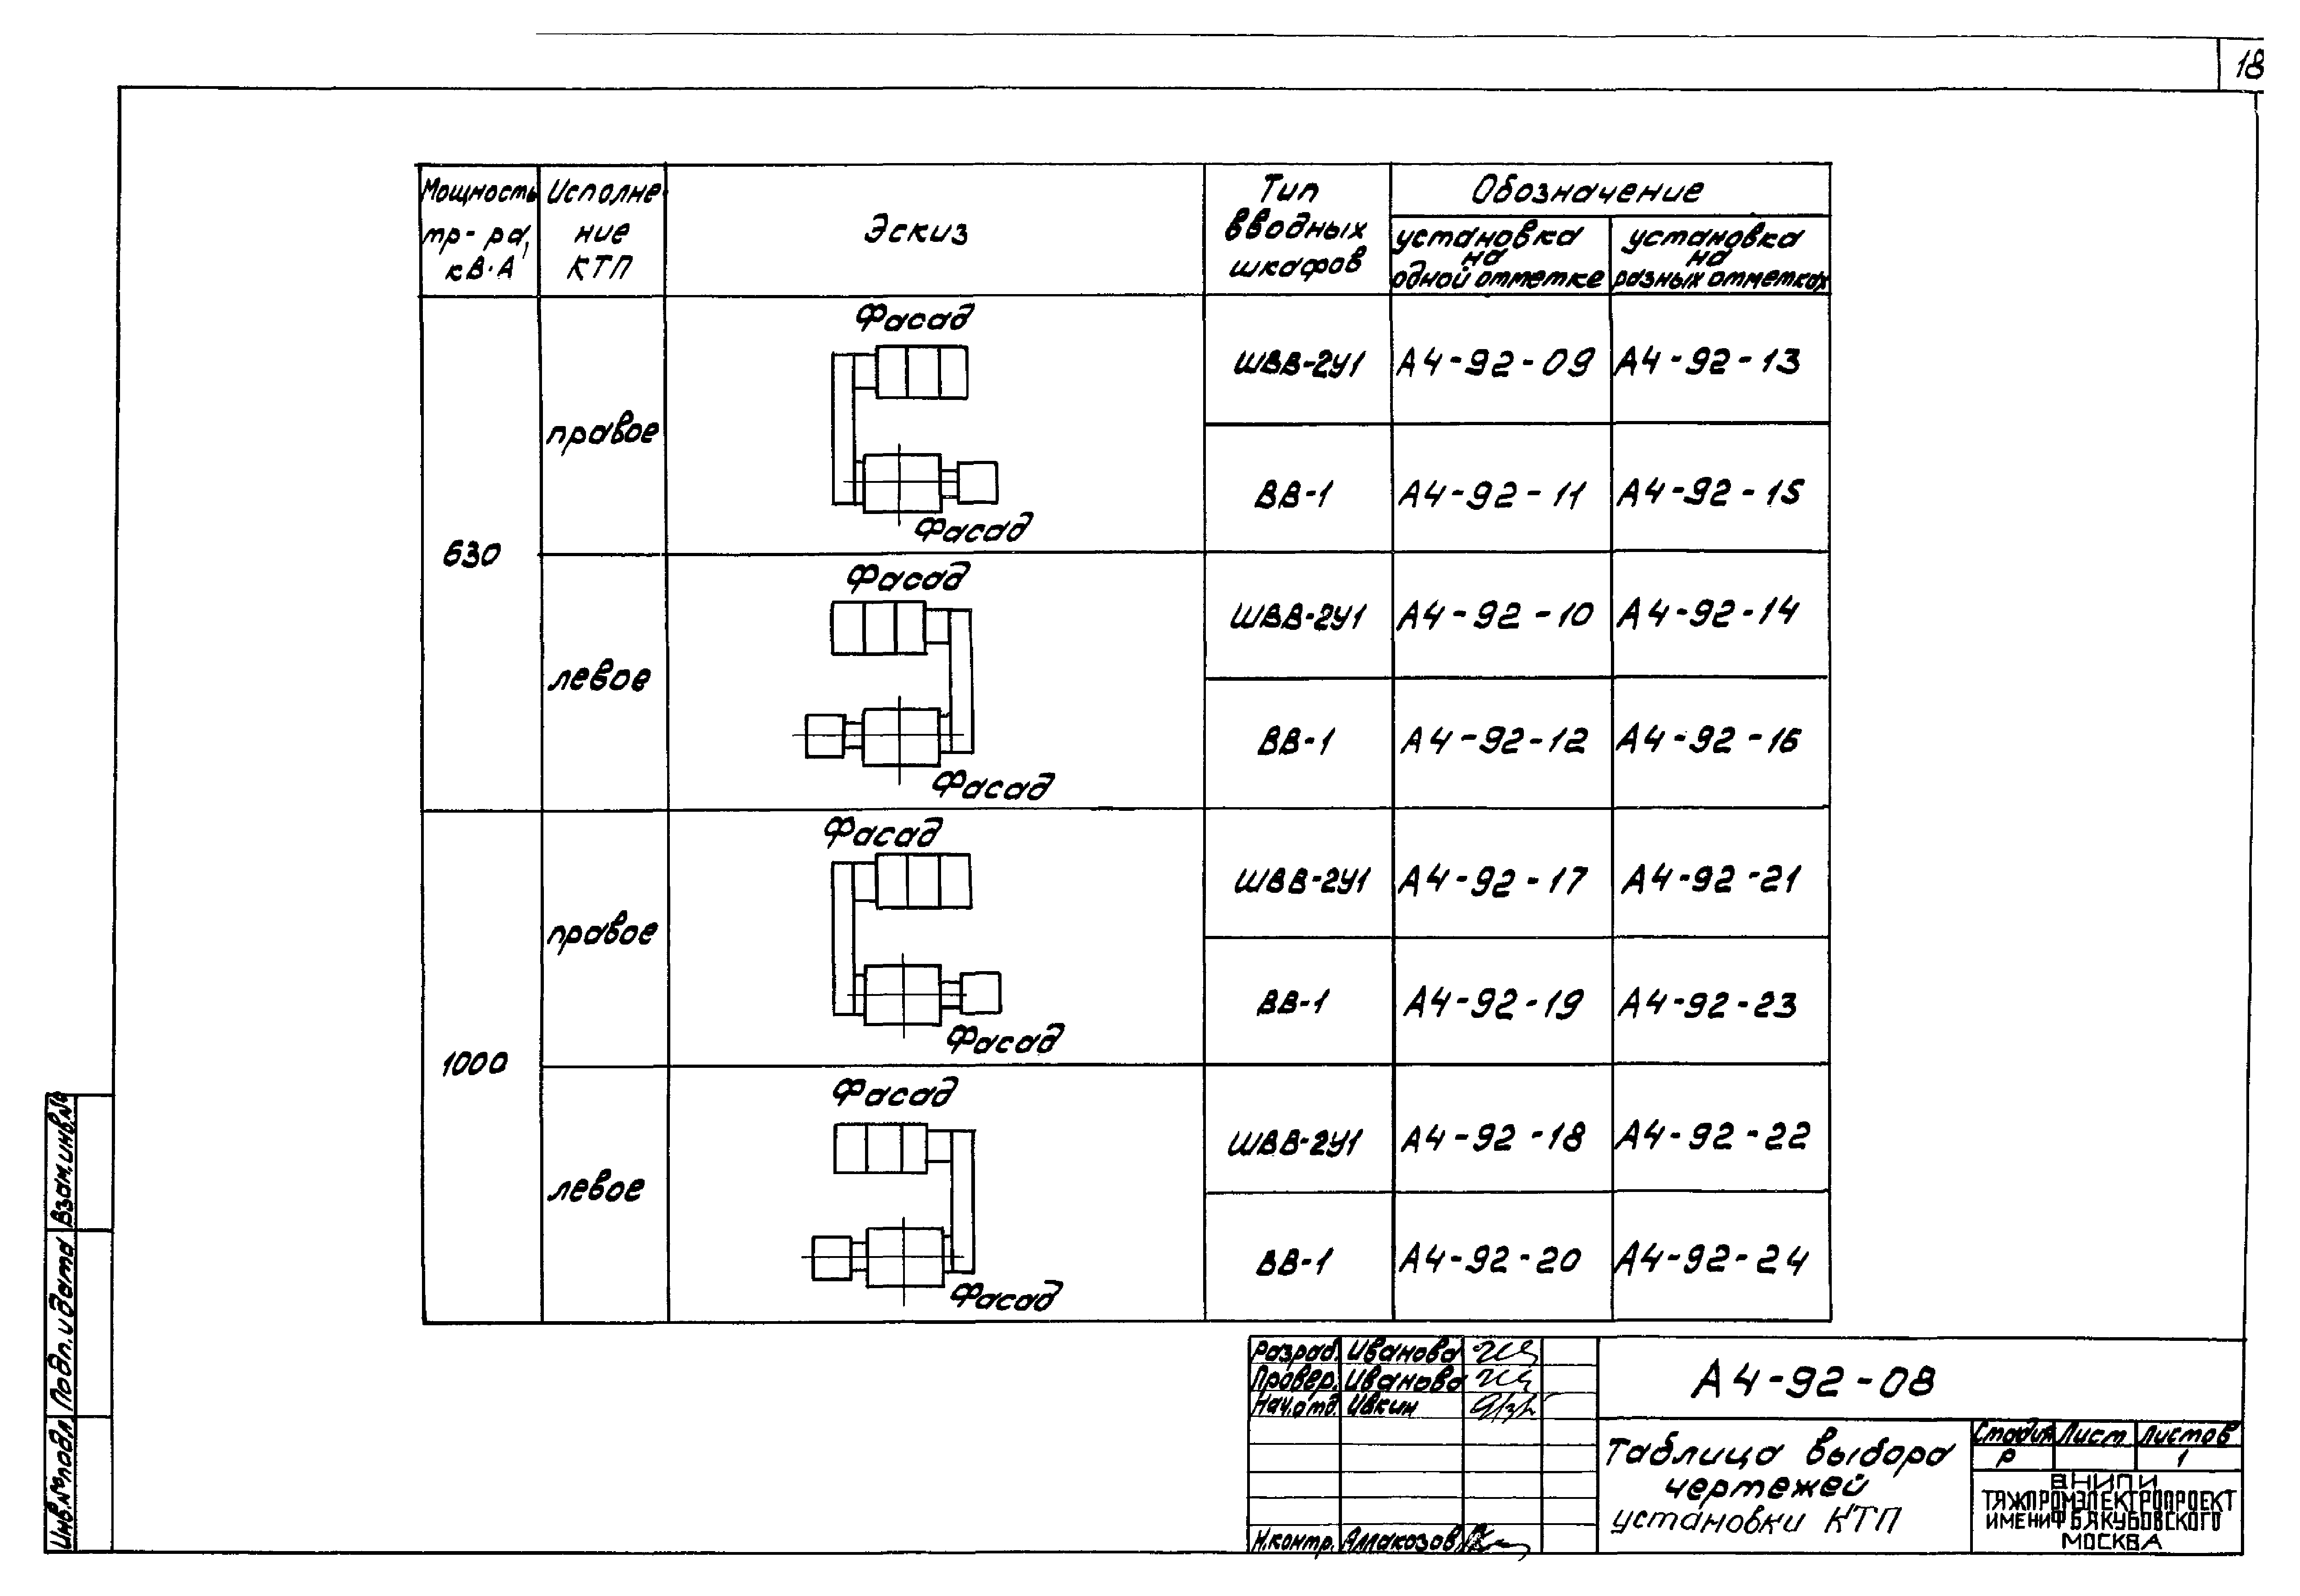 18
Мощность
тр-ра,
кВ·А
Исполне
ние
КТП
Эскиз
Тип
вводных
шкафов
Обозначение
установка
на
одной отметке
установка
на
разных отметках
630
правое
Фасад
Фасад
ШВВ-2У1 А4-92-09 А4-92-13
ВВ-1 А4-92-11 А4-92-15
левое
Фасад
Фасад
ШВВ-2У1 А4-92-10 А4-92-14
ВВ-1 А4-92-12 А4-92-16
1000
правое
Фасад
Фасад
ШВВ-2У1 А4-92-17 А4-92-21
ВВ-1 А4-92-19 А4-92-23
левое
Фасад
Фасад
ШВВ-2У1 А4-92-18 А4-92-22
ВВ-1 А4-92-20 А4-92-24
Взам.инв.№
Подп.и дата
Инв.№подл.
Разраб. Иванова
Провер. Иванова
Нач.отд. Ивкин
Н.контр. Алмакозов
А4-92-08
Таблица выбора
чертежей
установки КТП
Стадия Лист Листов
Р 1
ВНИПИ
ТЯЖПРОМЭЛЕКТРОПРОЕКТ
ИМЕНИ Ф Б ЯКУБОВСКОГО
МОСКВА